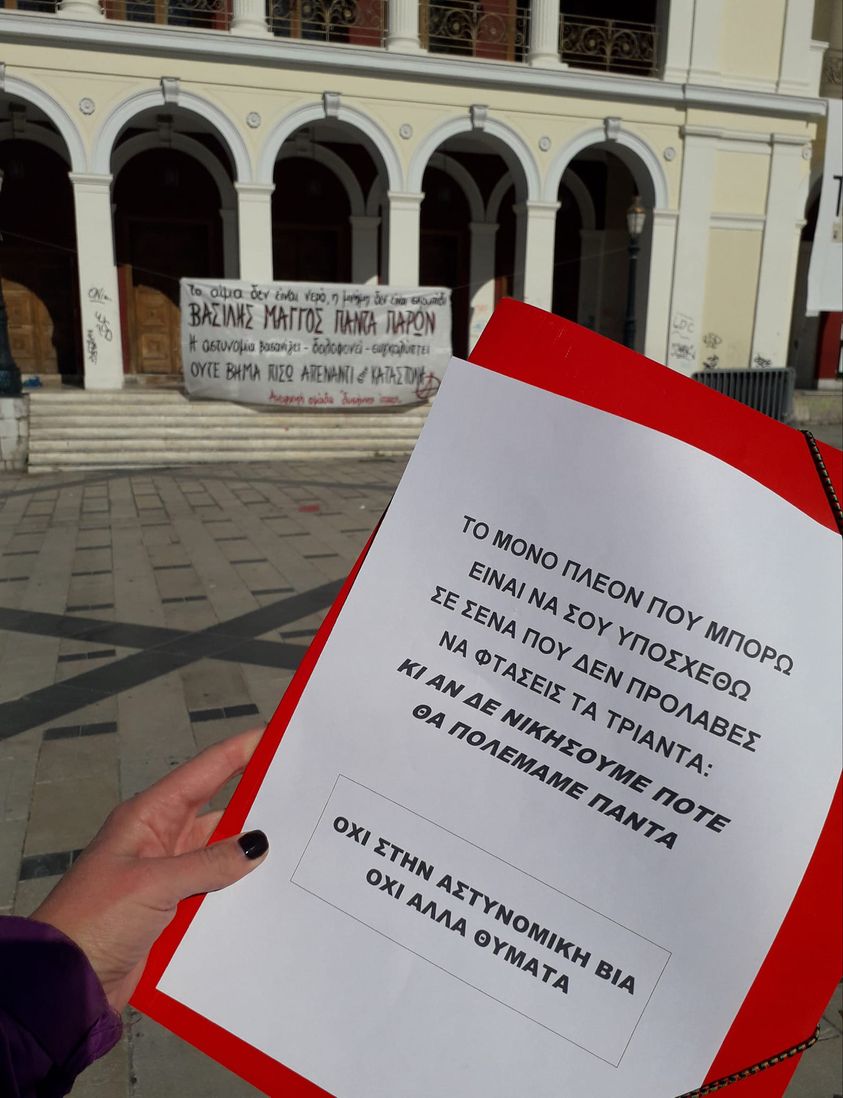 Το αίμα δεν είναι νερό, η μνήμη δεν είναι σκουπίδι
ΒΑΣΙΛΗΣ ΜΑΓΓΟΣ ΠΑΝΤΑ ΠΑΡΩΝ
Η αστυνομία βασανίζει - δολοφονεί - συγκαλύπτει
ΟΥΤΕ ΒΗΜΑ ΠΙΣΩ ΑΠΕΝΑΝΤΙ ΚΑΤΑΣΤΟΛΗ
ομάδα
ΤΟ ΜΟΝΟ ΠΛΕΟΝ ΠΟΥ ΜΠΟΡΩ
ΕΙΝΑΙ ΝΑ ΣΟΥ ΥΠΟΣΧΕΘΩ
ΣΕ ΣΕΝΑ ΠΟΥ ΔΕΝ ΠΡΟΛΑΒΕΣ
ΝΑ ΦΤΑΣΕΙΣ ΤΑ ΤΡΙΑΝΤΑ:
ΚΙ ΑΝ ΔΕ ΝΙΚΗΣΟΥΜΕ ΠΟΤΕ
ΘΑ ΠΟΛΕΜΑΜΕ ΠΑΝΤΑ
ΟΧΙ ΣΤΗΝ ΑΣΤΥΝΟΜΙΚΗ ΒΙΑ
ΟΧΙ ΑΛΛΑ ΘΥΜΑΤΑ